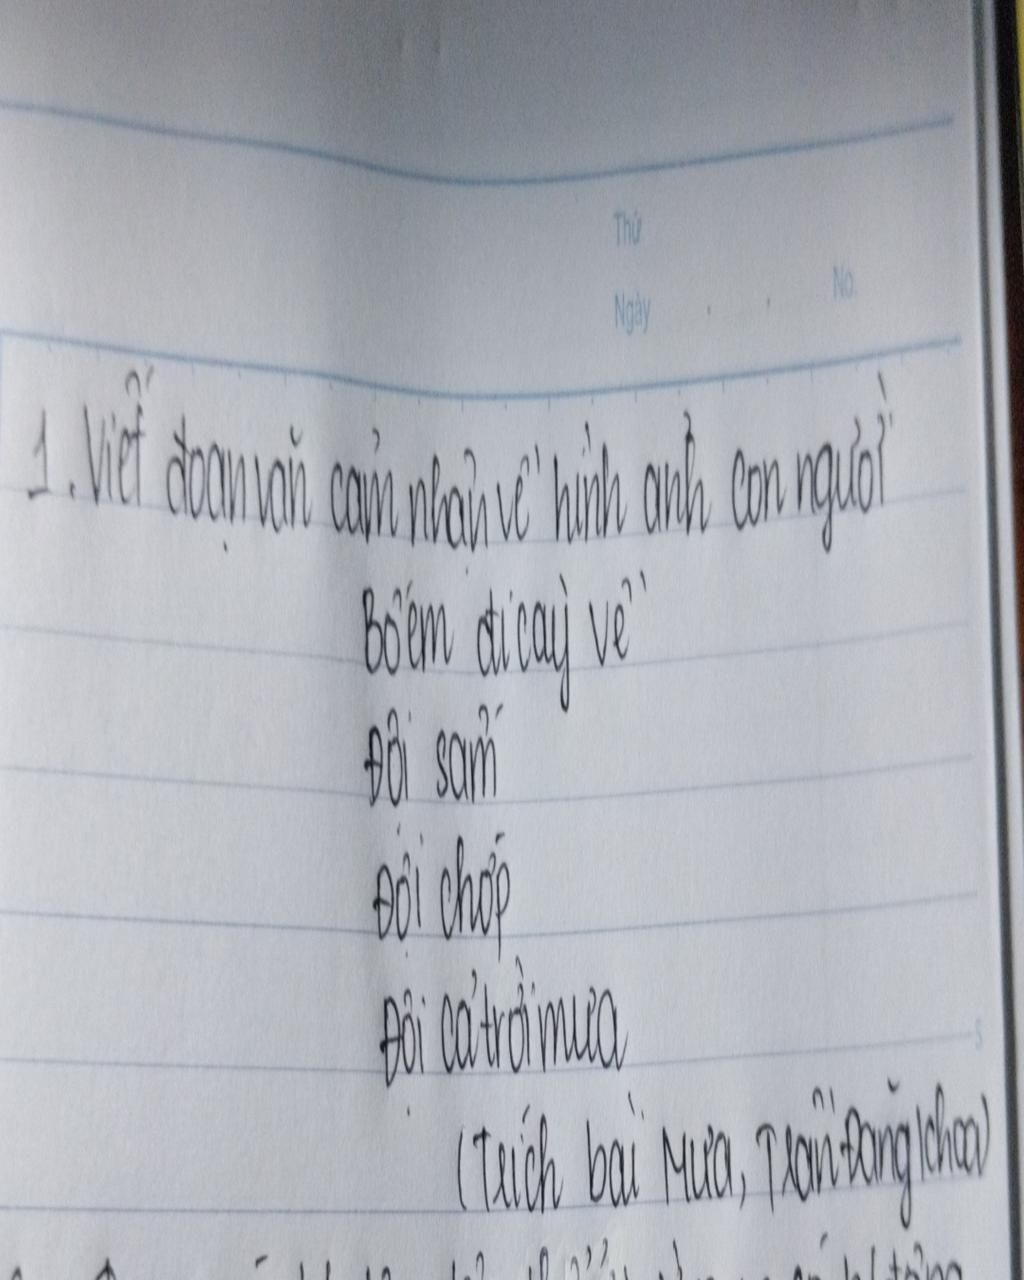 Thứ
Ngày No.
1. Viết đoạn văn cảm nhận về hình ảnh con người
Bố em đi cày về
Đội sấm
Đội chớp
Đội cả trời mưa
(Trích bài Mưa, Trần Đăng Khoa)